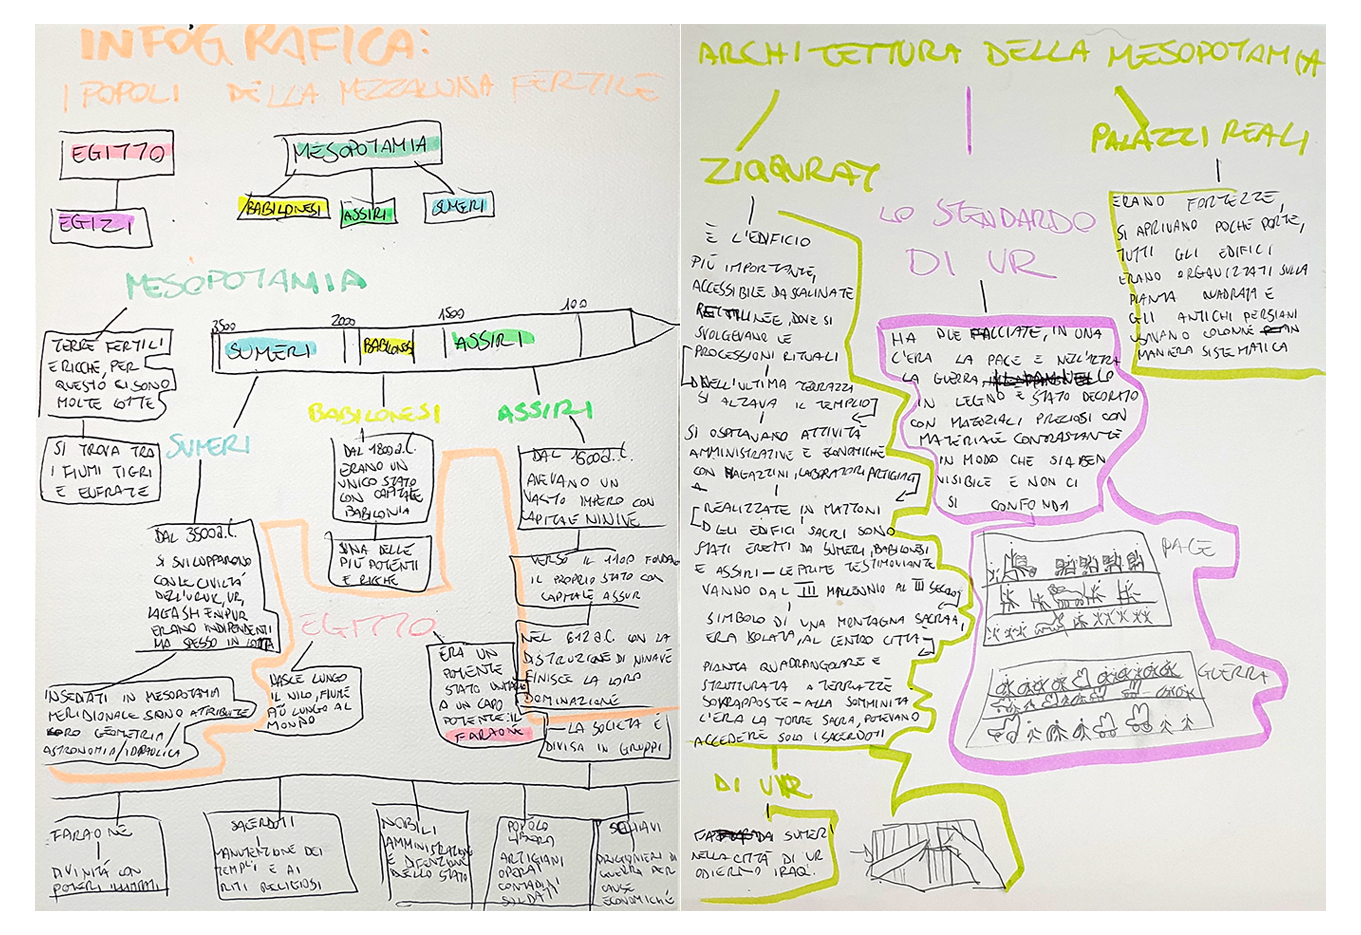 INFOGRAFICA:
I POPOLI DELLA MEZZALUNA FERTILE
EGITTO
EGIZI
MESOPOTAMIA
BABILONESI
ASSIRI
SUMERI
MESOPOTAMIA
TERRE FERTILI
E RICCHE, PER
QUESTO CI SONO
MOLTE LOTTE
SI TROVA TRA
I FIUMI TIGRI
E EUFRATE
3500
2000
1500
100
SUMERI
BABILONESI
ASSIRI
SUMERI
DAL 3500 a.C.
SI SVILUPPARONO
CON LE CIVILTÀ
DELL'URUK, UR,
LAGASH
ERANO INDIPENDENTI
MA SPESSO IN LOTTA
INSEDIATI IN MESOPOTAMIA
MERIDIONALE SONO ATTRIBUITE
LORO GEOMETRIA
ASTRONOMIA/IDRAULICA
BABILONESI
DAL 1800 a.C.
ERANO UN
UNICO STATO
CON CAPITALE
BABILONIA
UNA DELLE
PIÙ POTENTI
E RICCHE
ASSIRI
DAL 1500 a.C.
AVEVANO UN
VASTO IMPERO CON
CAPITALE NINIVE
VERSO IL 1100
IL PROPRIO STATO CON
CAPITALE ASSUR
NEL 612 a.C. CON LA
DISTRUZIONE DI NINAVE
FINISCE LA LORO
DOMINAZIONE
EGITTO
NASCE LUNGO
IL NILO, FIUME
PIÙ LUNGO AL
MONDO
ERA UN
POTENTE
STATO
A UN CAPO
POTENTE: IL
FARAONE
LA SOCIETÀ È
DIVISA IN GRUPPI
FARAONE
DIVINITÀ CON
POTERI
SACERDOTI
MANUTENZIONE DEI
TEMPLI E AI
RITI RELIGIOSI
NOBILI
AMMINISTRAZIONE
E DIFENZIONE
DELLO STATO
POPOLO
LIBERO
ARTIGIANI
OPERAI
CONTADINI
SOLDATI
SCHIAVI
PRIGIONIERI DI
GUERRA PER
CAUSE
ECONOMICHE
ARCHITETTURA DELLA MESOPOTAMIA
ZIQQURAT
È L'EDIFICIO
PIÙ IMPORTANTE,
ACCESSIBILE DA SCALINATE
RETTILINEE, DOVE SI
SVOLGEVANO LE
PROCESSIONI RITUALI
NELL'ULTIMA TERRAZZA
SI ALZAVA IL TEMPLIO
SI OSPITAVANO ATTIVITÀ
AMMINISTRATIVE E ECONOMICHE
CON MAGAZZINI, LABORATORI ARTIGIANI
REALIZZATE IN MATTONI
GLI EDIFICI SACRI SONO
STATI ERETTI DA SUMERI, BABILONESI
E ASSIRI - LE PRIME TESTIMONIANTE
VANNO DAL III MALLENNIO AL III SECOLO
SIMBOLO DI UNA MONTAGNA SACRA,
ERA ISOLATA, AL CENTRO CITTÀ
PIANTA QUADRANGOLARE E
STRUTTURATA A TERRAZZE
SOVRAPPOSTE - ALLA SOMMINITÀ
C'ERA LA TORRE SACRA, POTEVANO
ACCEDERE SOLO I SACERDOTI
DI UR
DA SUMERI
NELLA CITTÀ DI UR
ODIERNO IRAQ.
LO STENDARDO
DI UR
HA DUE FACCIATE, IN UNA
C'ERA LA PACE E NELL'ALTRA
LA GUERRA,
IN LEGNO È STATO DECORATO
CON MATERIALI PREZIOSI CON
MATERIALE CONTRASTANTE
IN MODO CHE SIA BEN
VISIBILE E NON CI
SI CONFONDA
PACE
GUERRA
PALAZZI REALI
ERANO FORTEZZE,
SI APRIVANO POCHE PORTE,
TUTTI GLI EDIFICI
ERANO ORGANIZZATI SULLA
PIANTA QUADRATA E
GLI ANTICHI PERSIANI
USAVANO COLONNE
MANIERA SISTEMATICA